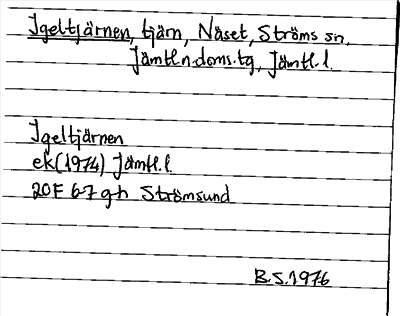 Igeltjärnen, tjärn, Näset, Ströms sn,
Jämtl.n.doms.tg, Jämtl.l.
Igeltjärnen
ek(1974) Jämtl.l.
20F 6-7 g-h Strömsund
B.S.1976